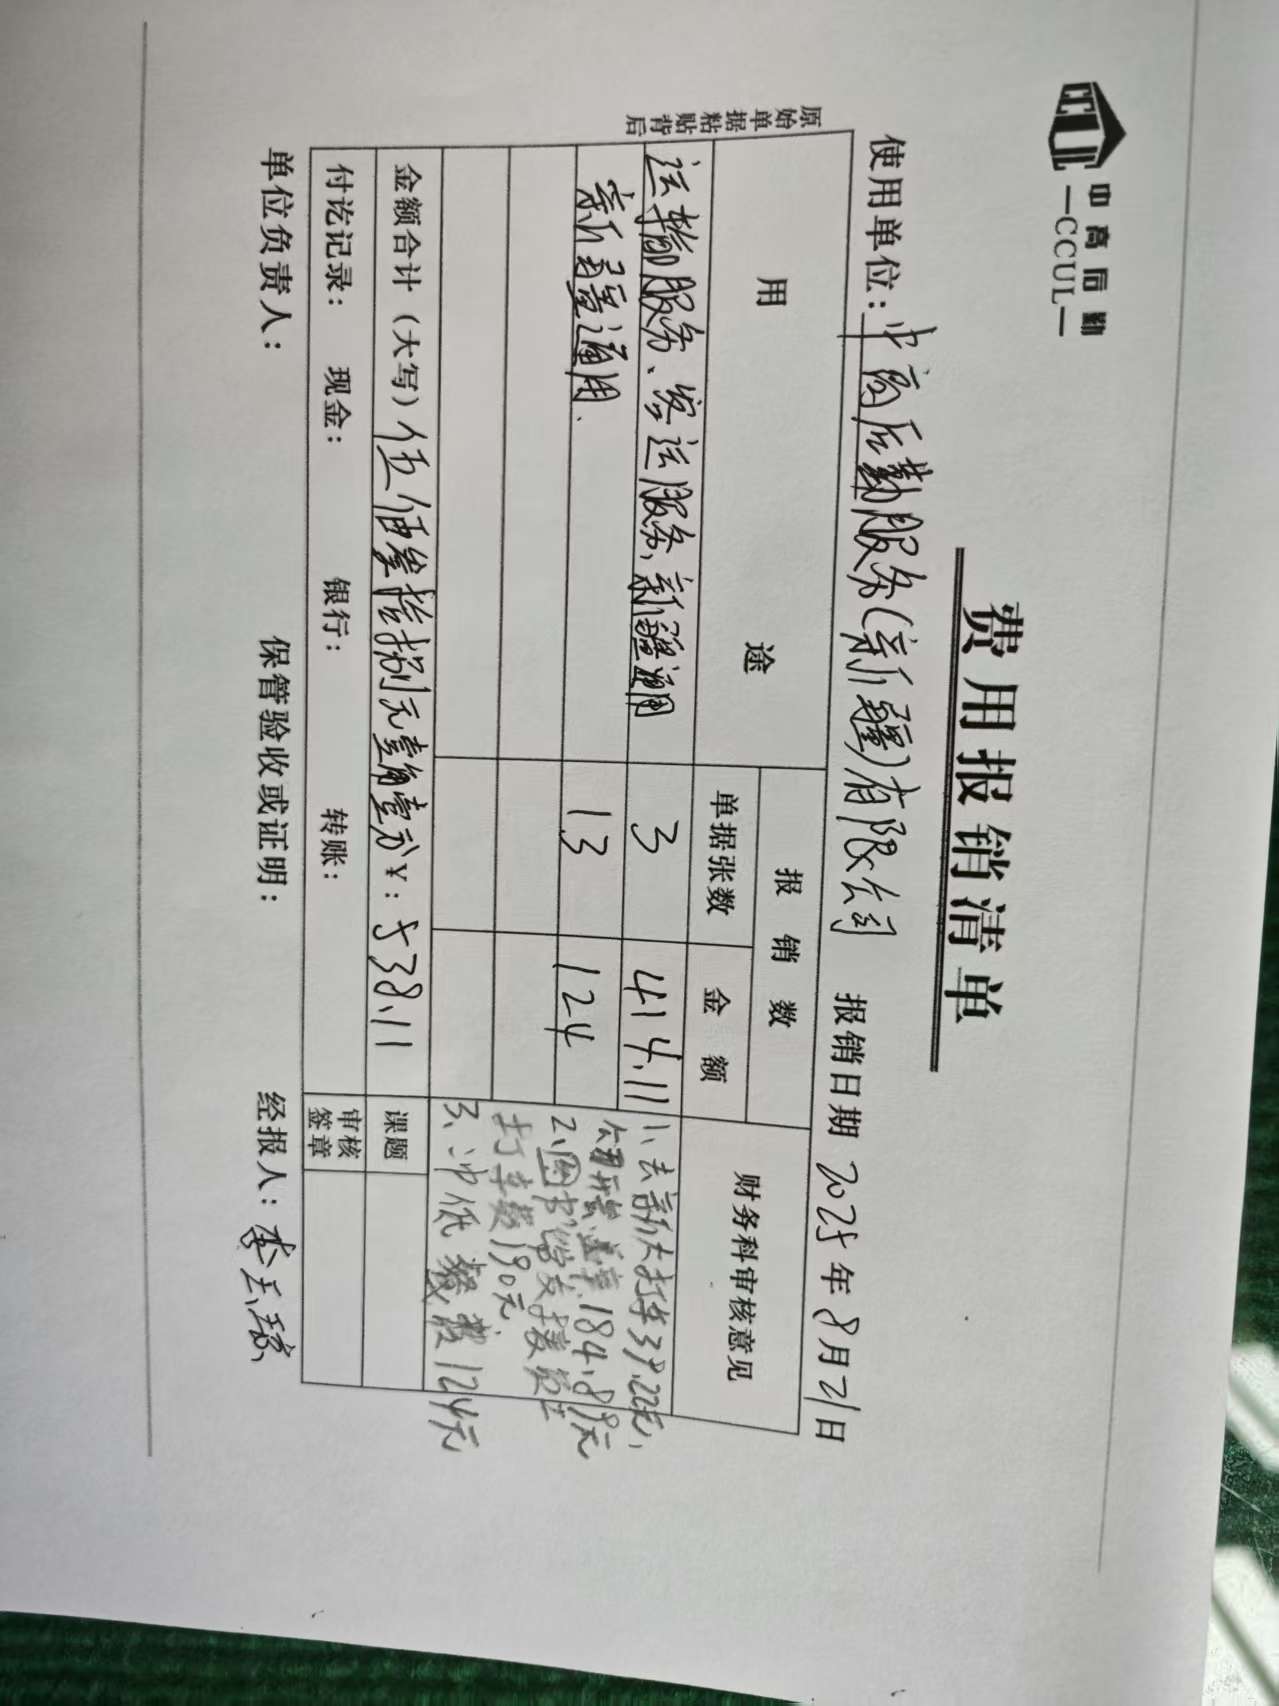 中高后勤
—CCUL—
费用报销清单
使用单位:中高后勤服务(新疆)有限公司 报销日期 2025年8月21日
原始单据粘贴背后
用途 报销数 财务科审核意见
单据张数 金额
运输服务、客运服务,新疆通用 3 414.11
新疆通用. 13 124
1、去新大打车39.22元,
盖章184.89元
2、图书馆支援
打车费190元
3、冲低 餐费 124元
金额合计(大写)伍佰叁拾捌元壹角壹分 ¥:538.11 课题
付讫记录: 现金: 银行: 转账: 审核签章
单位负责人: 保管验收或证明: 经报人:李玉